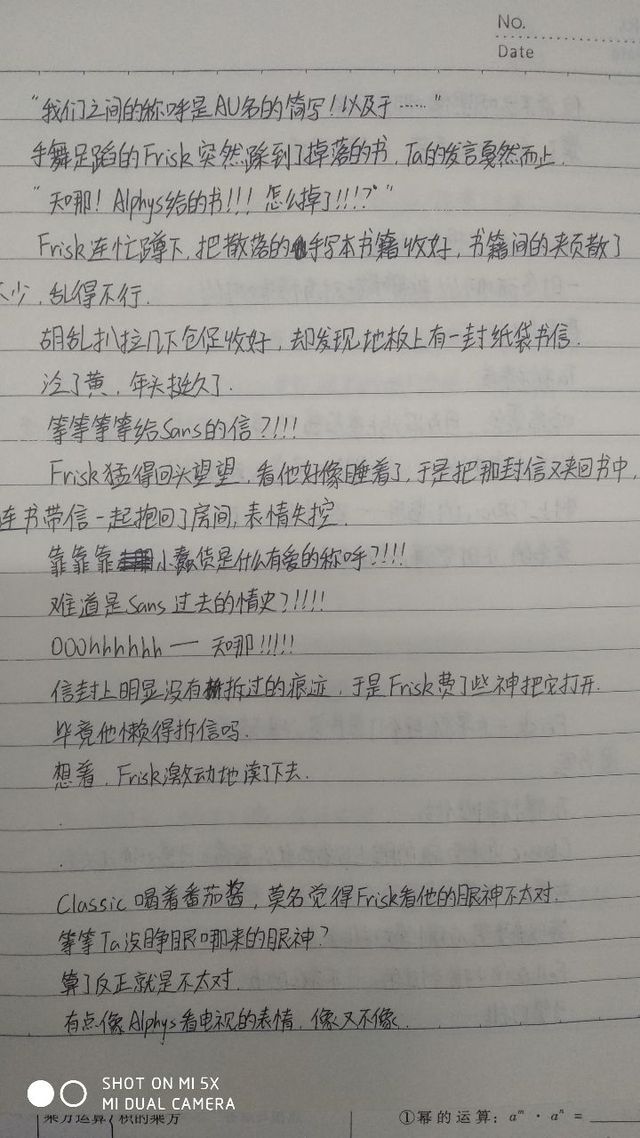 No.
Date
“我们之间的称呼是AU名的简写！以及于……”
手舞足蹈的Frisk突然踩到了掉落的书，Ta的发言戛然而止.
“天哪！Alphys给的书！！！怎么掉了！！！？”
Frisk连忙蹲下，把散落的手写本书籍收好，书籍间的夹页散了
不少，乱得不行.
胡乱扒拉几下仓促收好，却发现地板上有一封纸袋书信.
泛了黄，年头挺久了.
等等等等给Sans的信？！！！
Frisk猛得回头望望，看他好像睡着了，于是把那封信又夹回书中，
连书带信一起抱回了房间，表情失控.
靠靠靠小蠢货是什么有爱的称呼？！！！
难道是Sans过去的情史？！！！！
OOOhhhhhhh——天哪！！！！！
信封上明显没有拆过的痕迹，于是Frisk费了些神把它打开.
毕竟他懒得拆信吗.
想着，Frisk激动地读了下去.
Classic喝着番茄酱，莫名觉得Frisk看他的眼神不太对.
等等Ta没睁眼哪来的眼神？
算了反正就是不太对.
有点像Alphys看电视的表情，像又不像.
SHOT ON MI 5X
MI DUAL CAMERA
乘方运算 积的乘方
①幂的运算：aᵐ·aⁿ=